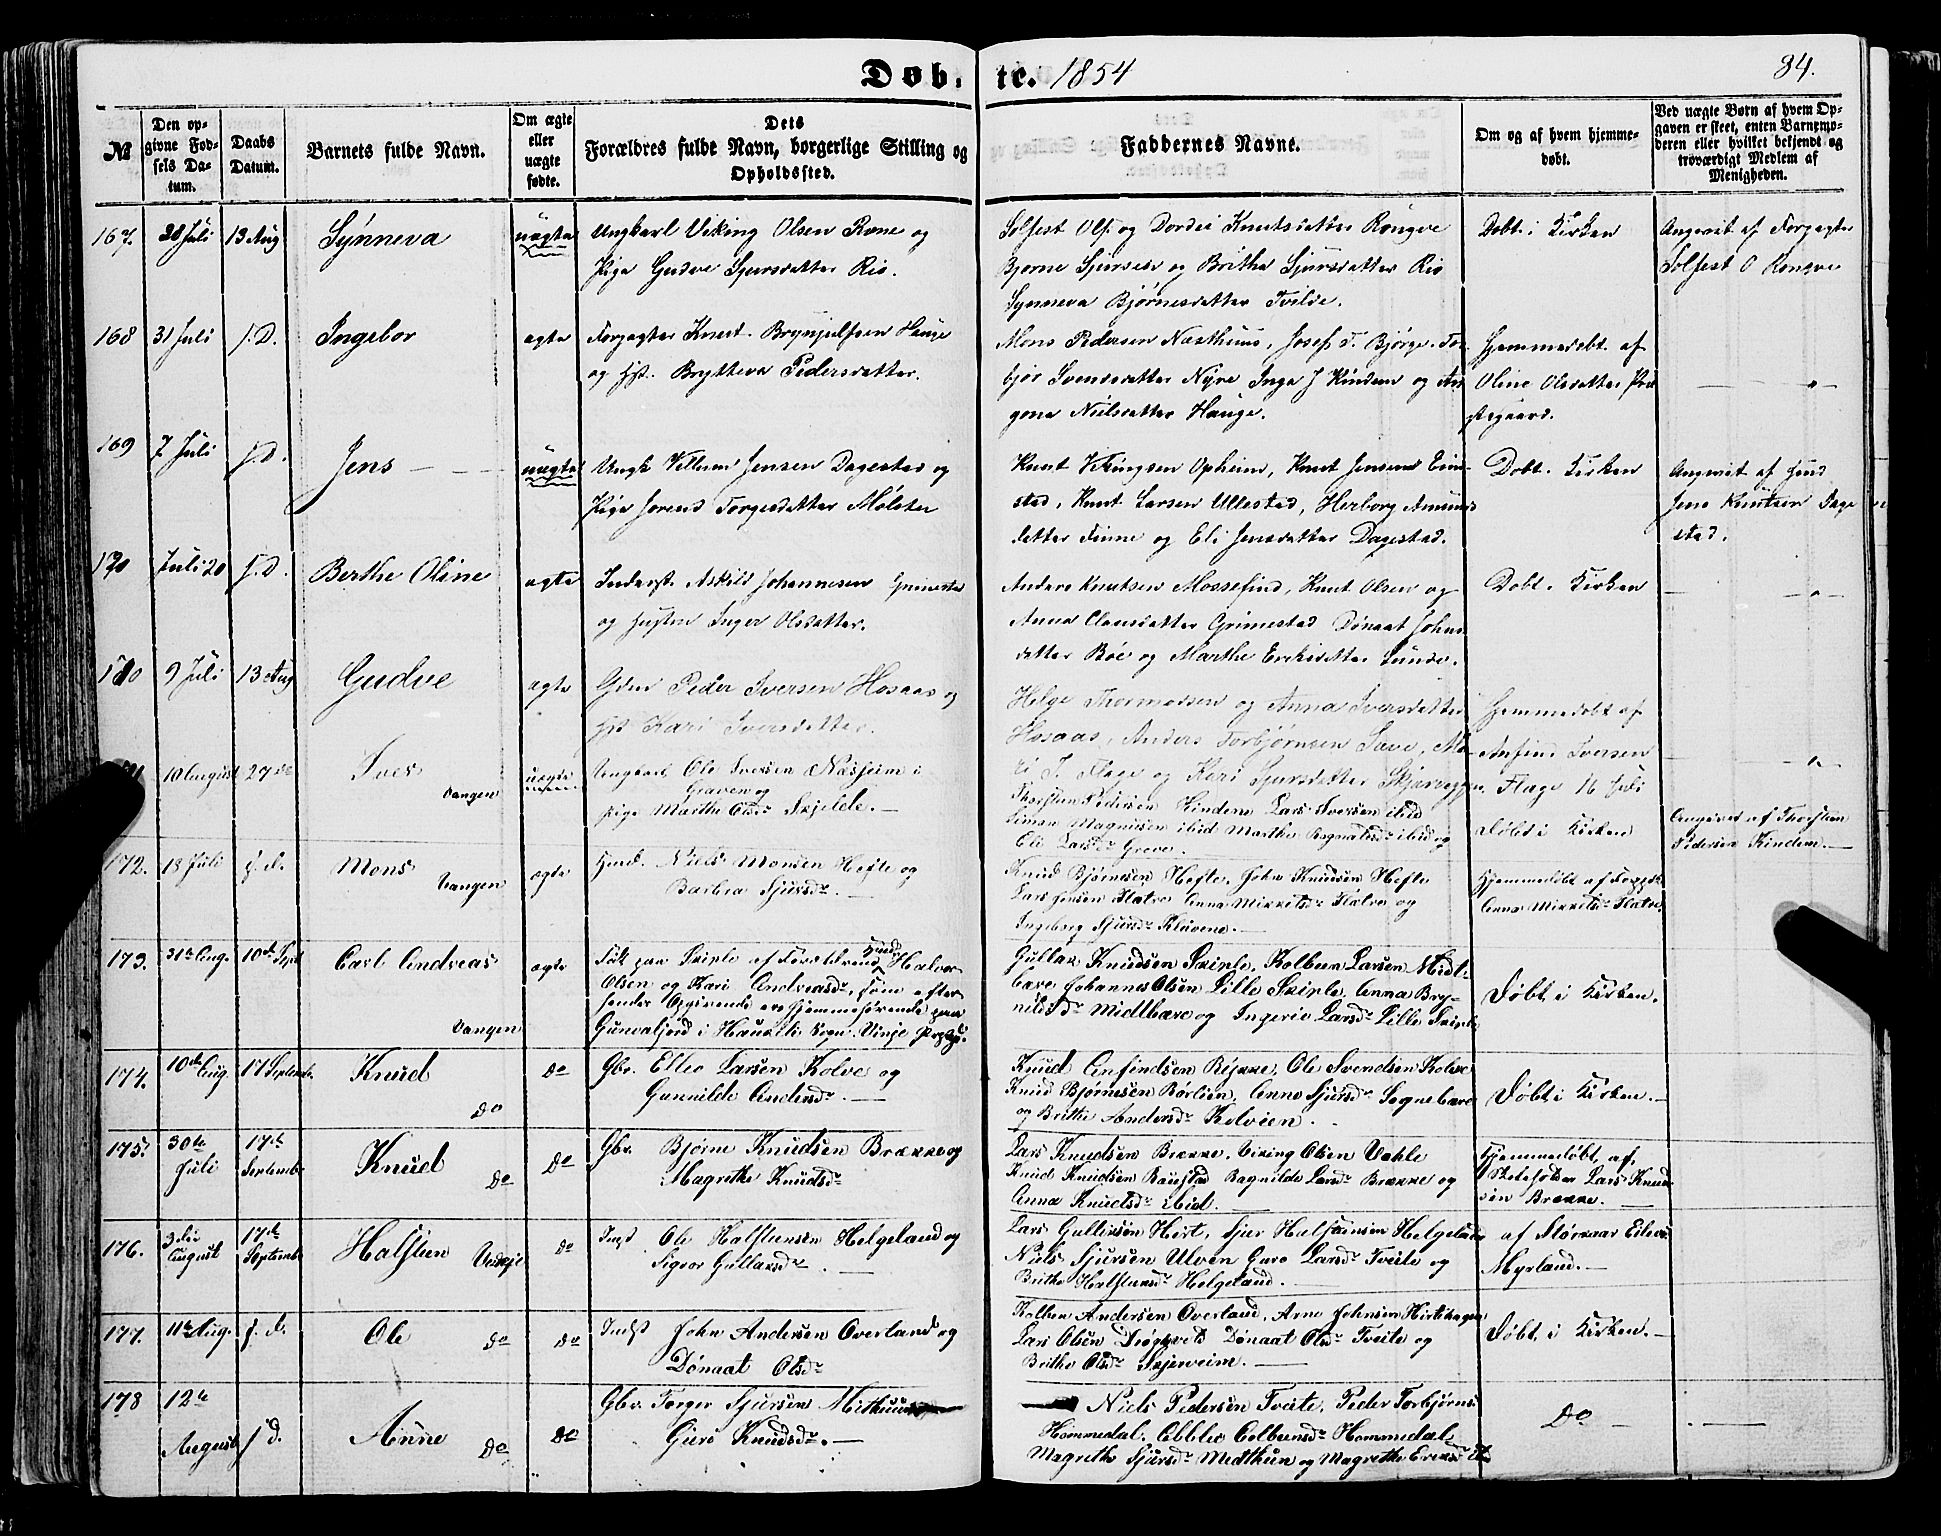 Døb, te. 1854
84.
№
Den opgivne Fødsels Datum.
Daabs Datum.
Barnets fulde Navn.
Om ægte eller uægte fødte.
Dets Forældres fulde Navn, borgerlige Stilling og Opholdssted.
Faddernes Navne.
Om og af hvem hjemmedøbt.
Ved uægte Børn af hvem Opgaven er skeet, enten Barnemoderen eller hvilket bekjendt og troværdigt Medlem af Menigheden.
167. Juli 13 Aug Synneva uægte Ungkarl Viking Olsen Rone og
Pige Gudve Sjursdatter Rio.
Solfest Ols. og Dordei Knutsdatter Rongve
Bjorne Sjursen og Britha Sjursdatter Rio
Synneva Bjørnesdatter Tvilde.
Døbt i Kirken
Angivet af Forpagter
Solfest O Rongve
168 31 Juli s. D. Ingebor ægte Forpagter Knut Brynjulfsen Hauge
og Hst. Brytteva Pedersdatter.
Mons Pedersen Næsthuus, Josef T. Bjørge. Tor-
bjør Svensdatter Nyre Inga J Kindem og
Nielsdatter Hauge.
Hjemmedøbt af
Oline Olsdatter Præ
stegaard.
169 7 Juli s. D. Jens uægte Ungk Villum Jensen Dagestad og
Pige Torgersdatter Mølster
Knut Vikingsen Opheim, Knut Jensen
stad, Knut Larsen Ullestad, Herborg Amunds
datter Finne og Eli Jensdatter Dagestad.
Døbt i Kirken
Angivet af
Jens Knutson Dage
stad.
170 Juli 20 s. D. Berthe Oline ægte Inderst. Askild Johannesen Grimestad
og Hustru Inger Olsdatter.
Anders Knutsen Mossefind, Knut Olsen og
Anna Clausdatter Grimestad Dønaat Johns
datter Bøe og Marthe Eriksdatter Lunde.
Døbt i Kirken
9 Juli 13 Aug Gudve ægte Gdm Peder Iversen Hosaas og
Hst Kari Iversdatter.
Helge Thormodsen og Anna Iversdatter
Hosaas, Anders Torbjørnsen Sæve, Ma-
ri T. Flage og Kari Sjursdatter
Hjemmedøbt af
Anfind Iversen
Flage 16 Juli
10 August 27de Iver Vangen uægte Ungkarl Ole Iversen Næsheim i
Graven og
pige Marthe Olsdr Skjelde. —
Thorsten Pedersen Kindem Lars Iversen ibid
Simon Magnusen ibid Marthe Ragnaldsdr ibid og
Eli Larsdr Greve.
Døbt i Kirken
Angivet af Thorsten
Pedersen Kindem. —
172. 18 Juli s. d. Mons Vangen ægte Hmd. Niels Monsen Hefte og
Barbra Sjursdr. —
Knud Bjørnesen Hefte, John Knudsen Hefte
Lars Jensen Flatre Anna Mikkelsdr Flatre og
Ingeborg Sjursdr Kluvene. —
Hjemmedøbt af
Anna Mikkelsdr Flatre.
173. 31te Aug. 10de Sept Carl Andreas Vangen ægte Født paa Skiple af Forældrene Knud Halvor
Olsen og Kari Andreasdr, som efter
sender Opgivende ere hjemmehørende paa
Gunvaljord i Haukeli Sogn, Vinje Præstgj.
Gullak Knudsen Skiple, Kolbein Larsen Midt-
bære Johannes Olsen Lille Skiple, Anna Bry-
nildsdr Midtbære og Ingerie Larsdr Lille Skiple
Døbt i Kirken.
174. 10de Aug. 17 Septembr. Knud Do Do Gbr. Ellev Larsen Kolve og
Gunnilde Andersdr. —
Knud Anfindsen Rekve, Ole Svendsen Kolve
Knud Bjørnesen Rørlien, Anna Sjursdr Sognebære
og Brithe Andersdr Kolvien.
Døbt i Kirken. —
175. 30te Juli 17de Septembr Knud Do Do Gbr. Bjørne Knudsen Brække og
Magrethe Knudsdr
Lars Knudsen Brække, Viking Olsen Væhle
Knud Knudsen Raustad Ragnilde Larsdr Brække og
Anna Knudsdr ibid. —
Hjemmedøbt af,
Skoleholder Lars Knud
sen Brække. —
176. 3die August 17de Septembr Halsten Vinje Do Indst Ole Halstensen Helgeland og
Sigvor Gullaksdr. —
Lars Gulliksen Hirt, Sjur Halstensen Helgeland
Niels Sjursen Ulven Guro Larsdr Tveite og
Brithe Halstensdr Helgeland. —
af Eilevs
Myrland. —
177. 11te Aug. s. d. Ole Do Do Indst John Andersen Overland og
Dønaat Olsdr
Kolben Andersen Overland, Arne Johnsen
Lars Olsen Dønaat Olsdr Tveite og
Brithe Olsdr Skjerveim. —
Døbt i Kirken. —
178 12te August s. d. Anne Do Do Gbr. Torger Sjursen Mithuun
Guro Knudsdr. —
Niels Pedersen Tveite, Peder Torbjørns
Hommedal, Eblee Colbensdr Hommedal,
Magrethe Sjursdr Medthun og Magrethe Eriksdr
Do —